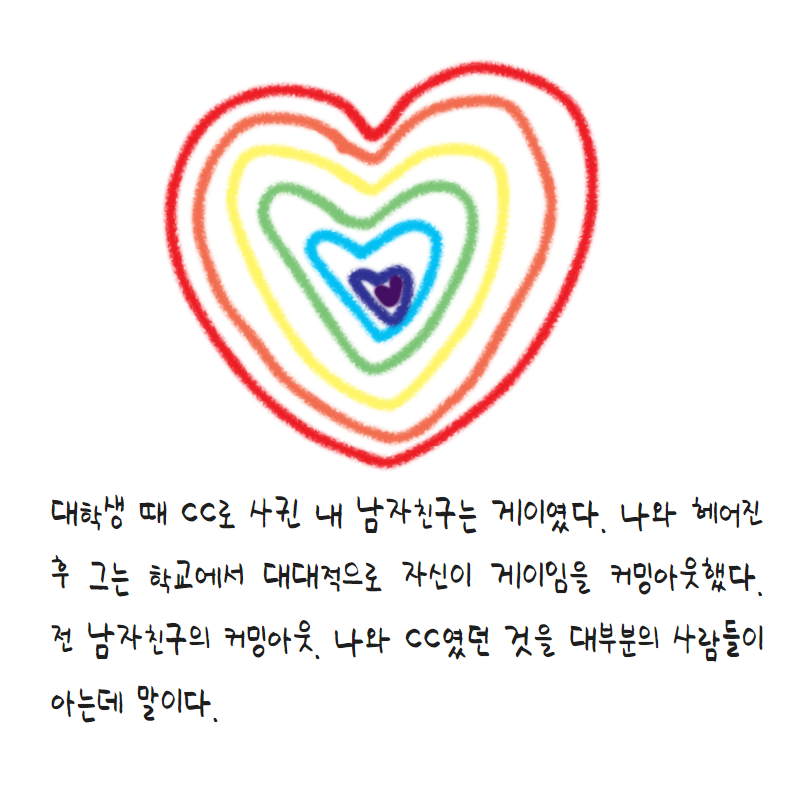 대학생 때 CC로 사귄 내 남자친구는 게이였다. 나와 헤어진
후 그는 학교에서 대대적으로 자신이 게이임을 커밍아웃했다.
전 남자친구의 커밍아웃. 나와 CC였던 것을 대부분의 사람들이
아는데 말이다.